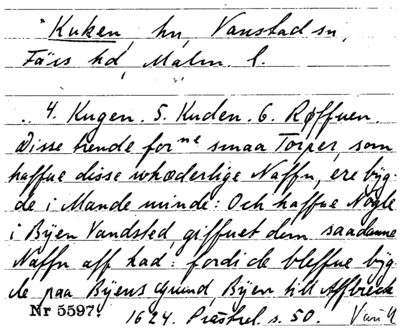 "Kuken, hn, Vanstad sn,
Färs hd, Malm. l.
.. 4. Kugen. 5. Kuden. 6. Røffuen.
Disse trende forne smaa Torper, som
haffue disse uhæderlige Naffn, ere byg-
de i Mande minde: Och haffue Nogle
i Byen Vandsted, giffuet dem saadanne
Naffn aff had: fordi de bleffue byg-
de paa Byens Grund, Byen till Affbreck
Nr 5597. 1624. Præstrel. s. 50.